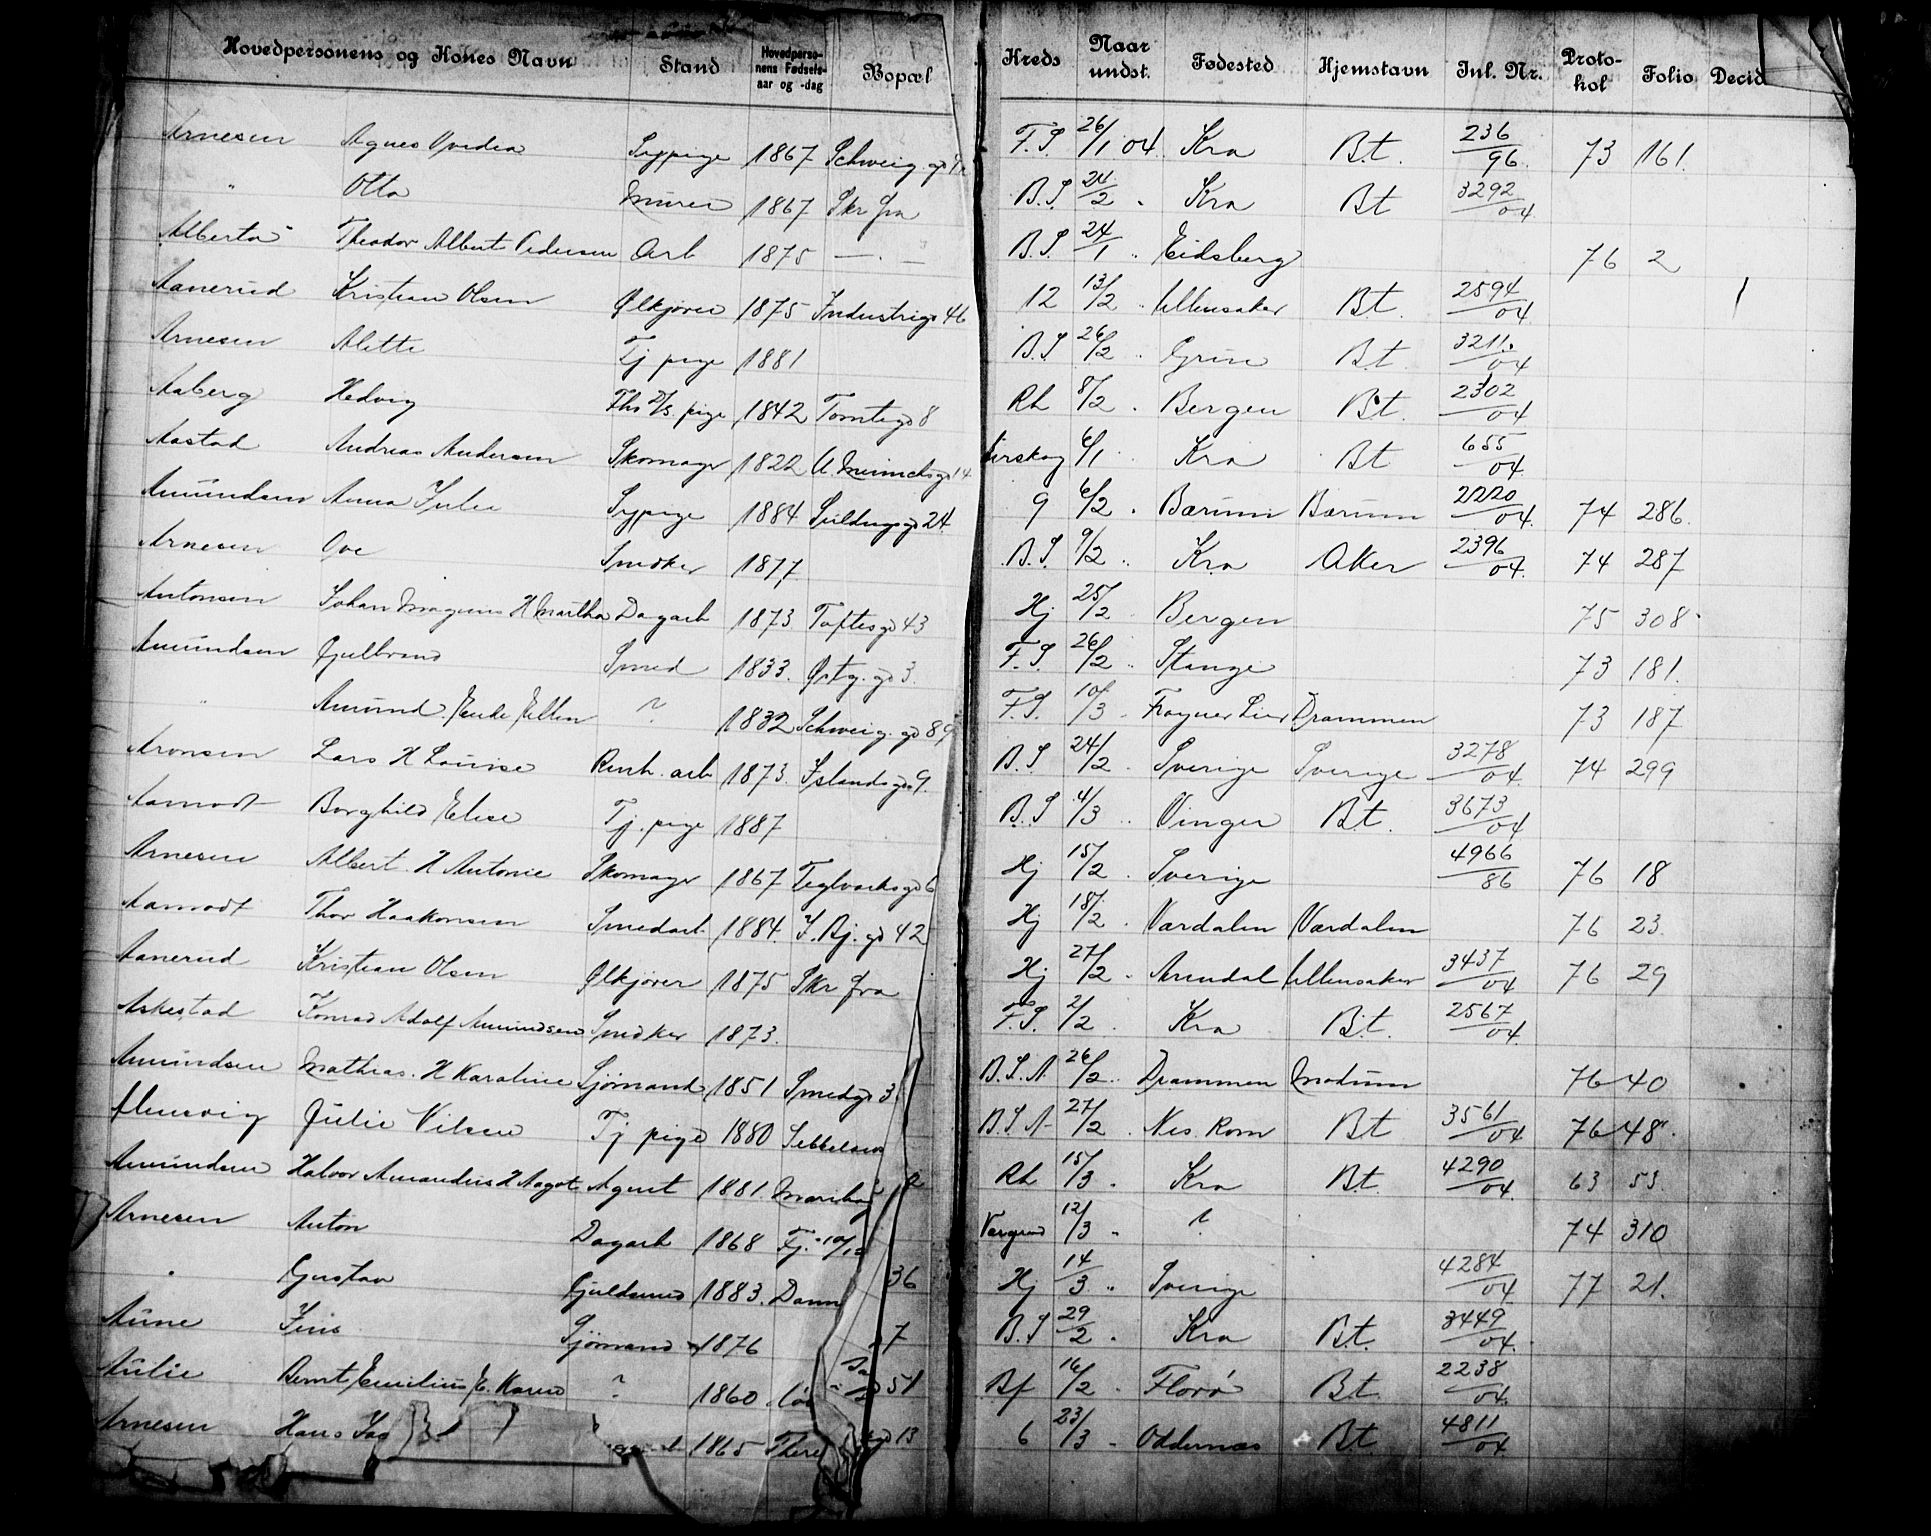 Hovedpersonens og Kones Navn Stand Hovedpersonens Fødselsaar og -dag Bopæl Kreds Naar undst. Fødested Hjemstavn Jnl. Nr. Protokol Folio Decid
Arnesen Agnes Ovidia Sypige 1867 Schweig gd F.S. 26/1 04. Kra Bt. 236/96. 73 161.
" Otto Murer 1867 Skr fra B.S. 24/2 " Kra Bt 3292/04
Alberto Theodor Albert Pedersen Arb 1875 — " — B.S. 24/1 " Eidsberg 76 2
Aanerud Kristian Olsen Ølkjører 1875 Industrigd 46 12 13/2 " Ullensaker Bt. 2594/04
Arnesen Alette Tj pige 1881 B.S 26/2 " Grue Bt. 3211/04
Aaberg Hedvig Fhs pige 1842 Tomtegd 8 Rh 8/2 " Bergen Bt. 2302/04
Aastad Andreas Andersen Skomager 1822 U. Munchsgd 14 6/1 " Kra Bt 655/04
Amundsen Anna Julie Sypige 1884 Seildugsgd 24 9 6/2 " Bærum Bærum 2220/04. 74 286.
Arnesen Ove Snedker 1877 B.S. 9/2 " Kra Aker 2396/04. 74 287
Antonsen Johan Magnus H Martha Dagarb 1873 Toftesgd 43 Hj 25/2 " Bergen 75 308
Amundsen Gulbrand Smed 1833. Østg. gd 3. F.S. 26/2 " Stange 73 181.
" Amund. Enke Ellen ? 1832 Schweig. gd 89 F.S. 10/3 " Frogner Lier Drammen 73 187
Aronsen Lars H Louise Renh. arb 1873. Islandsgd 9. B.S 24/2 " Sverige Sverige 3278/04. 74 299
Aamodt Borghild Elise Tj. pige 1887 B.S 4/3 " Vinger Bt. 3673/04
Arnesen Albert. H Antonie Skomager 1867 Teglverksgd 6 Hj 15/2 " Sverige 4966/86 76 18
Aamodt Thor Haakonsen Smedarb. 1884. J. Bj. gd 42 Hj 18/2 " Værdalen Værdalen 76 23.
Aanerud Kristian Olsen Ølkjører 1875 Skr fra Hj 27/2 " Arendal Ullensaker 3437/04 76 29
Askestad Konrad Adolf Amundsen Snedker 1873. F.S. 2/2 " Kra Bt. 2567/04.
Amundsen Mathias. H Karoline Sjømand 1851 Smedgd 3 B.S.A 26/2 " Drammen Modum 76 40
Julie Nilsen Tj pige 1880 B.S.A 27/2 " Nes. Rom Bt 3561/04 76 48
Amundsen Halvor Amandus H Aagot Agent 1881. Rh 15/3 " Kra Bt. 4290/04. 63 53.
Arnesen Anton Dagarb 1868 12/3 " ? 74 310
" Gustav Guldsmed 1883. 36 Hj 14/3 " Sverige 4284/04 77 21.
Aune Jens Sjømand 1876 7 B.S 29/2 " Kra Bt. 3449/04.
Aulie Bernt Emilius E. Karen ? 1860 51 Bf 16/2 " Florø Bt 2238/04.
Arnesen Hans 1865 13 6 23/3 " Oddernæs Bt 4811/04.